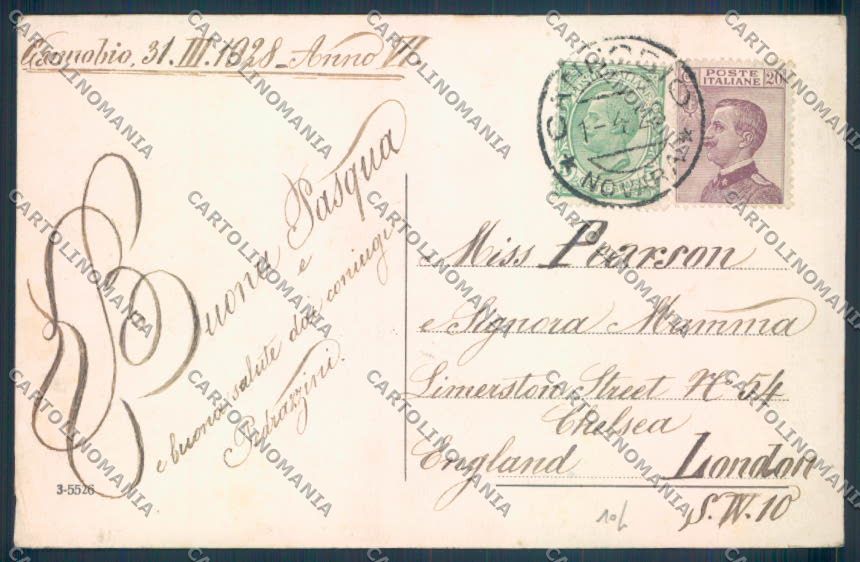 Cannobio, 31.III.1928 - Anno VI
Buona Pasqua
e
e buona salute dai coniugi
Pedrazzini.
3-5526
CANNOBIO
NOVARA
POSTE
ITALIANE
20
Miss Pearson
e Signora Mamma
Limerston Street No 54
Chelsea
England London
S.W. 10
CARTOLINOMANIA